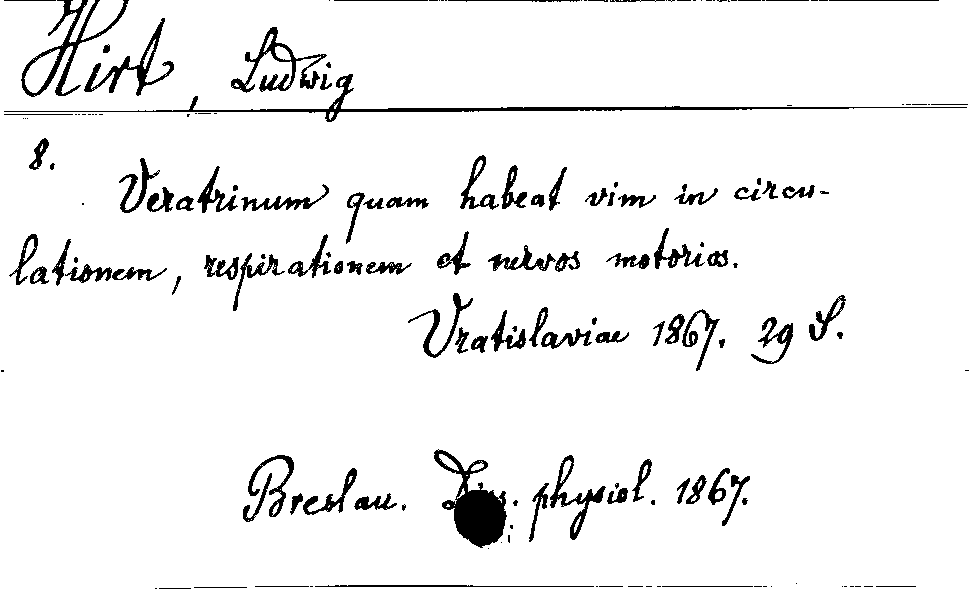 Hirt, Ludwig
8.
Veratrinum quam habeat vim in circu-
lationem, respirationem et nervos motorios.
Vratislaviae 1867. 29 S.
Breslau. Diss. physiol. 1867.